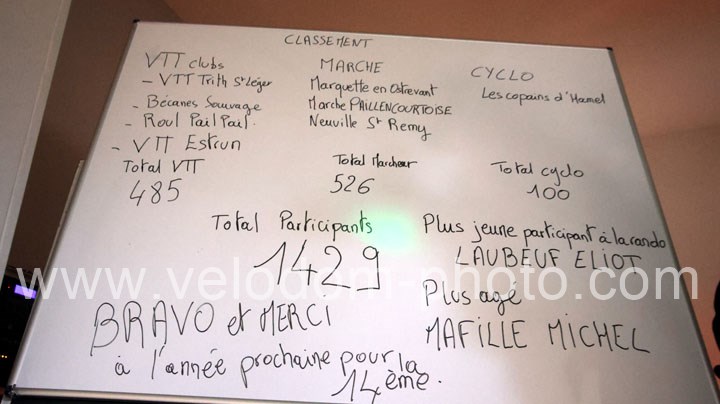 CLASSEMENT
VTT clubs
- VTT Trith St Léger
- Bécanes Sauvage
- Roul Pail Pail.
- VTT Estrun
Total VTT
485
MARCHE
Marquette en Ostrevant
Marche PAILLENCOURTOISE
Neuville St Remy
Total Marcheur
526
CYCLO
Les copains d'Hamel
Total cyclo
100
Total Participants
1429
Plus jeune participant à la rando
LAUBEUF ELIOT
Plus agé
MAFILLE MICHEL
BRAVO et MERCI
à l'année prochaine pour la
14ème.
www.velodom-photo.com